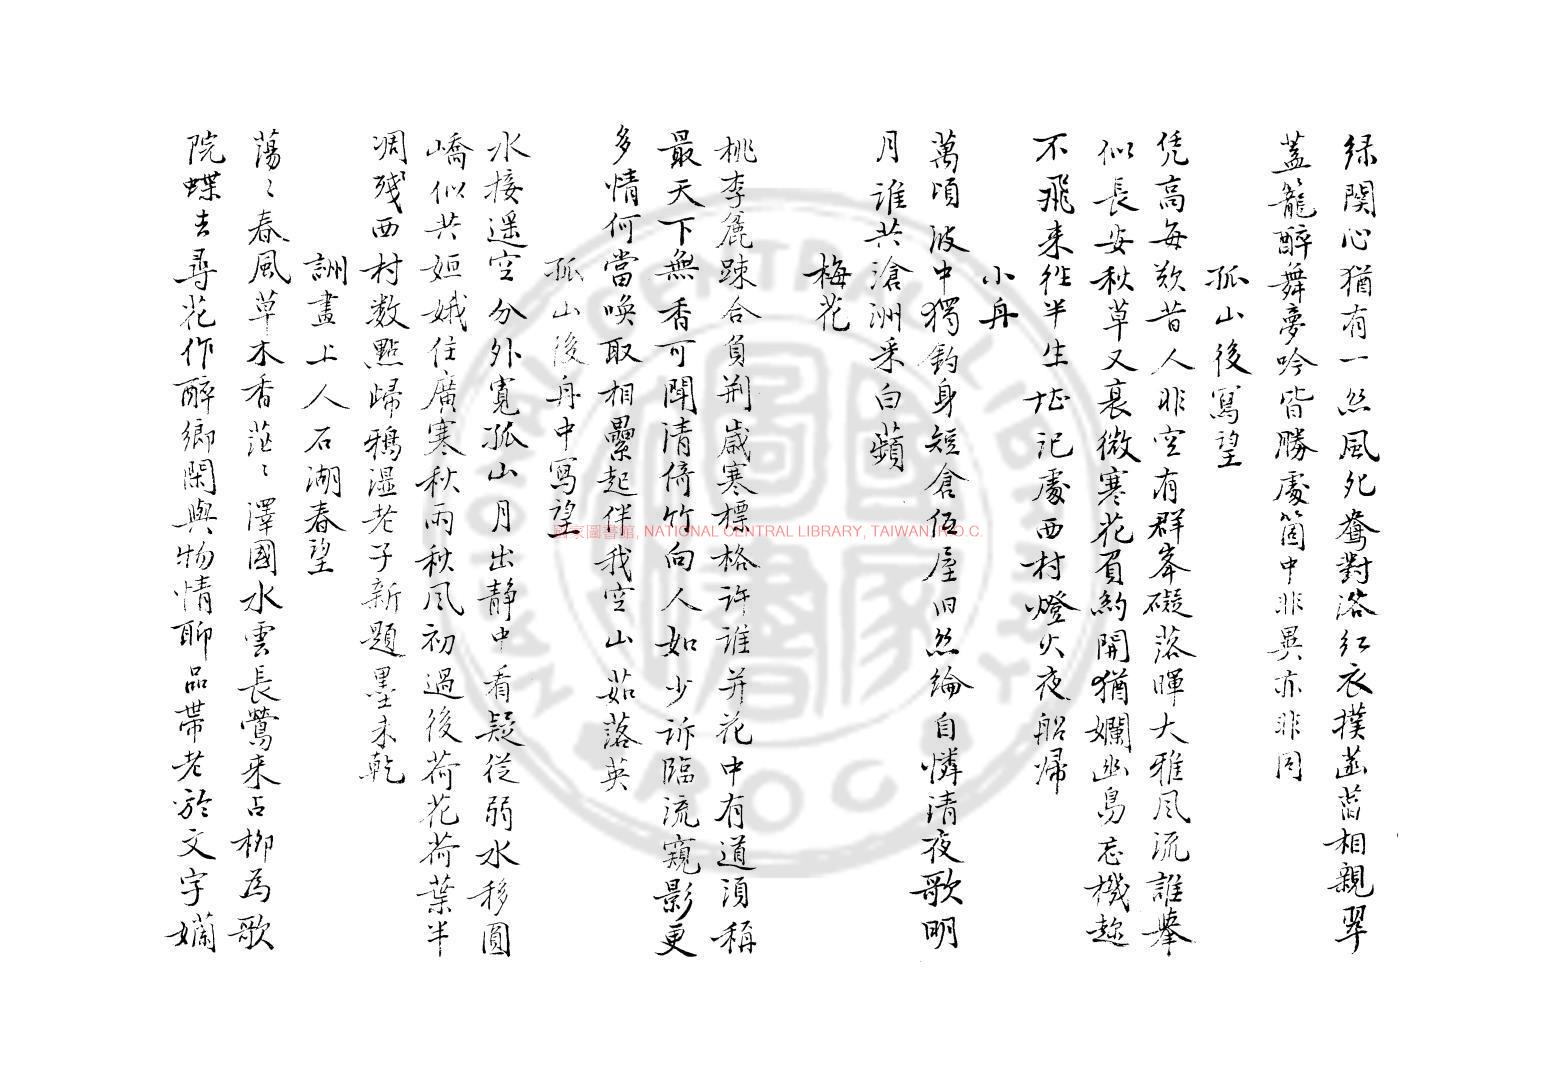 緑関心猶有一然風死鴦對落紅衣撲菡萏相親翠
葢籠醉舞夢吟皆勝處箇中非異亦非同
孤山後寫望
凭高每歎昔人非空有群峯礙落暉大雅風流誰攀
似長安秋草又衰微寒花有約開猶嬾幽鳥忘機趂
不飛来徃半生堪記處西村燈火夜船歸
小舟
萬頃波中獨釣身短倉伍屋旧然綸自憐清夜歌明
月誰共滄洲采白蘋
梅花
桃李麁踈合負荆歳寒標格許誰并花中有道須稱
最天下無香可聞清倚竹向人如少訴臨流窺影更
多情何當喚取相纍起伴我空山茹落英
孤山後舟中寫望
水接遥空分外寛孤山月出静中看疑従弱水移圓
嶠似共姮娥住廣寒秋雨秋风初過後荷花荷葉半
凋殘西村数點歸鴉湿老子新題墨未乾
詶畫上人石湖春望
蕩〻春風草木香茫〻澤國水雲長鶯来占柳為歌
院蝶去尋花作醉鄉閑與物情聊品帶老於文字嬾
國家圖書館, NATIONAL CENTRAL LIBRARY, TAIWAN, R.O.C.